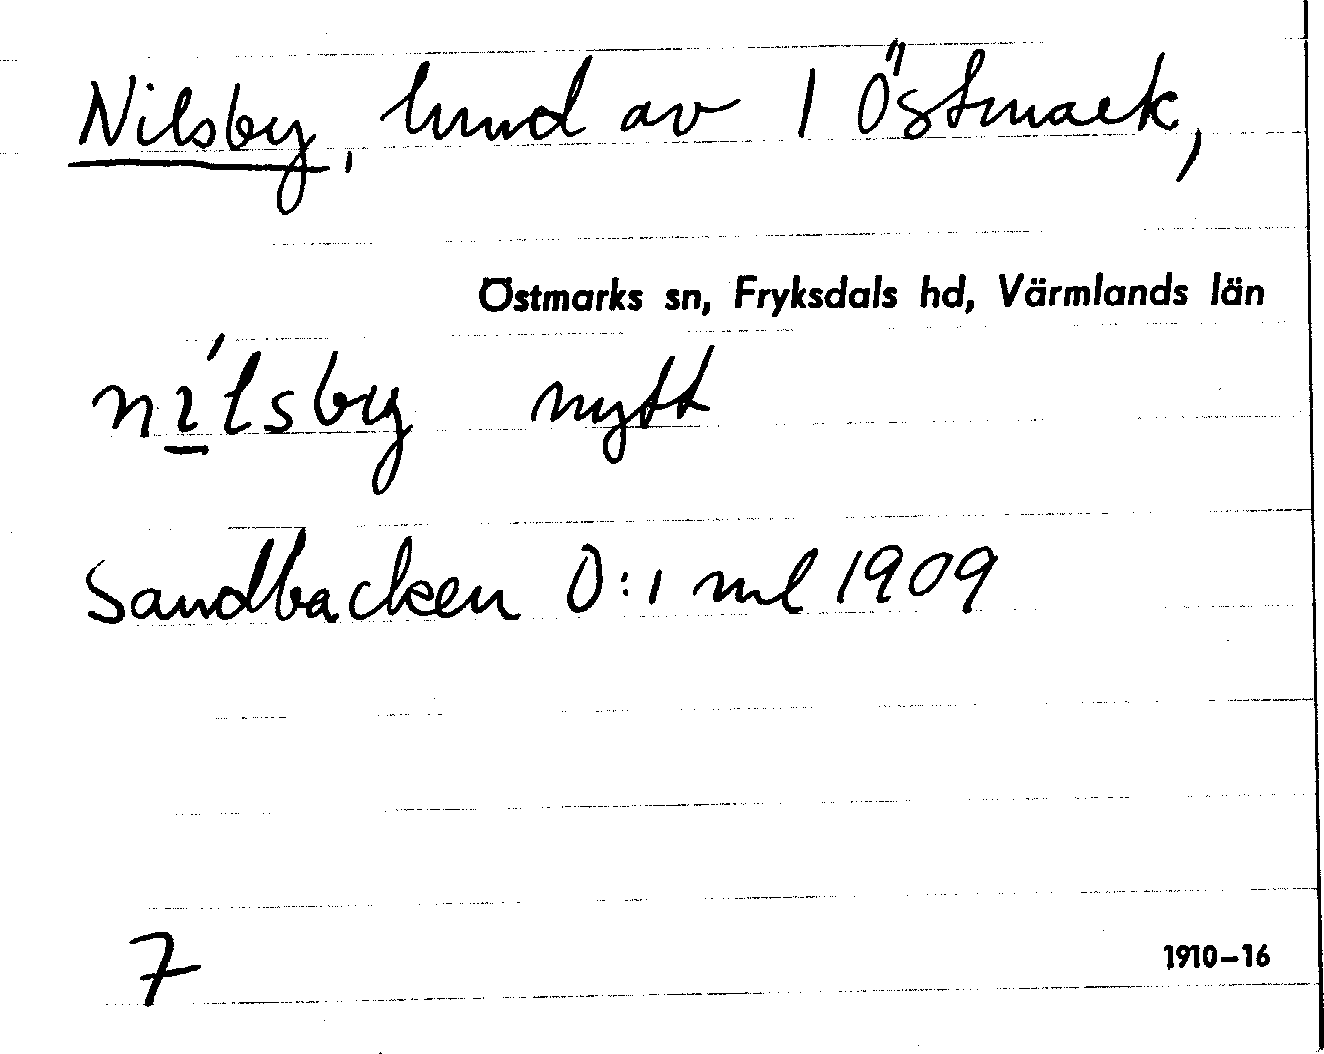 Nilsby, hmd av 1 Östmark,
Östmarks sn, Fryksdals hd, Värmlands län
nìlsby nytt
Sandbacken Ö:1 ml 1909
7
1910–16